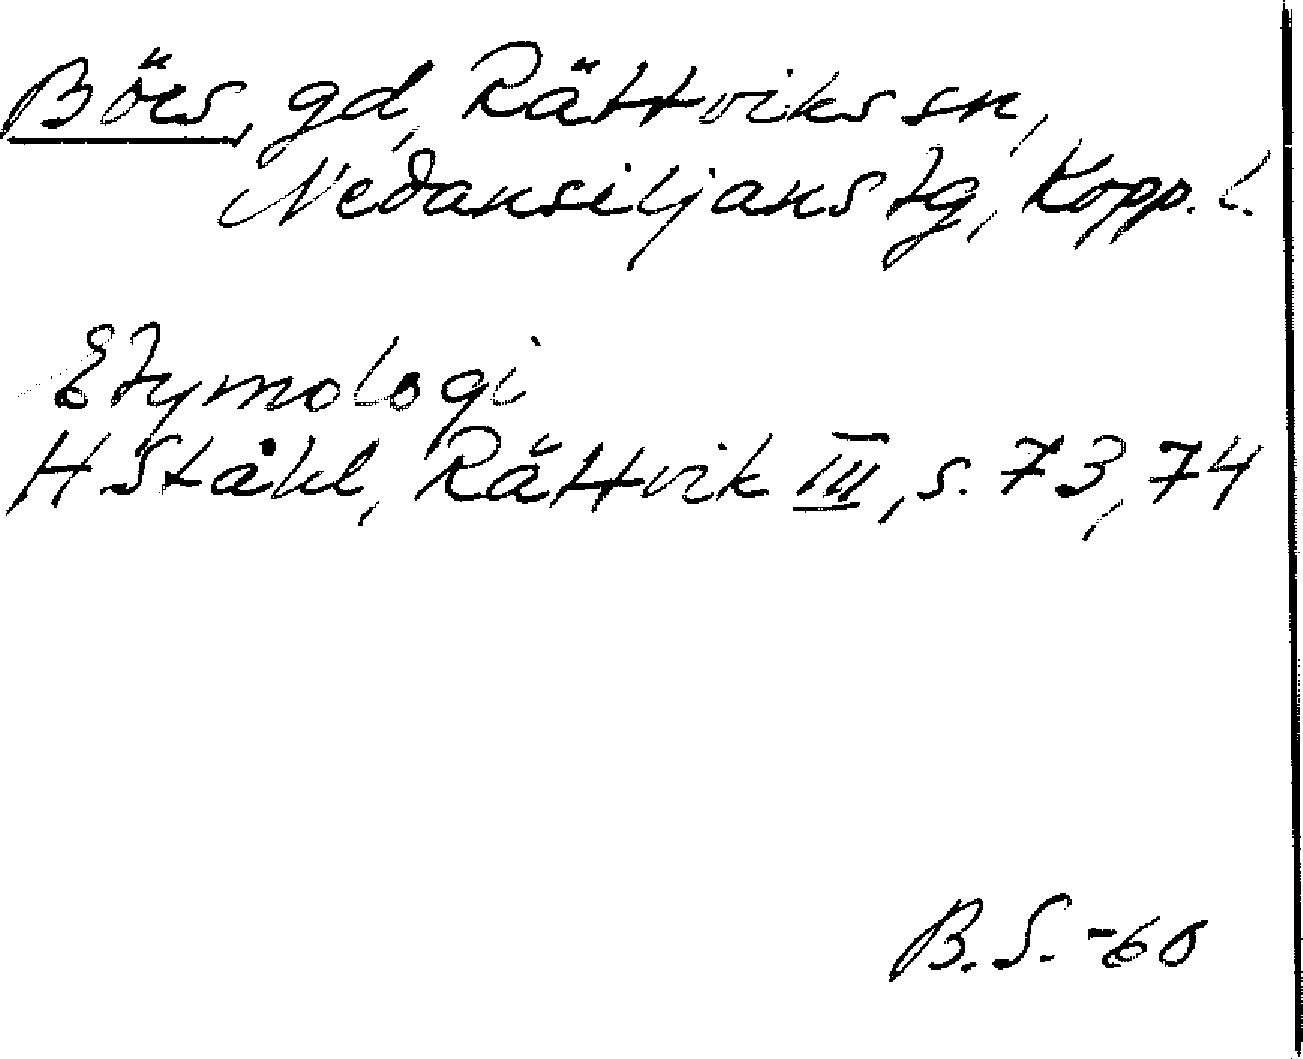 Börs, gd, Rättviks sn,
Nedansiljans tg, Kopp. l.
Etymologi
H Ståhl, Rättvik III, s. 73, 74
B. S. -60